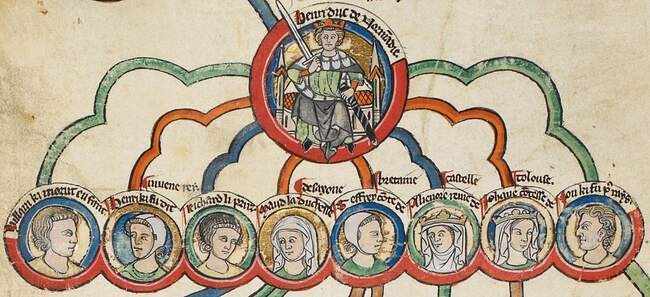 Henri duc de Normãdie
iuuene rey.
de saxone
bretaine
castelle
tolouse.
Willam ki morut enfant
Henri ki fu dit
Richard li
Maud la duchesse
Geffrey cõte de
Alienore reine de
Iohane cõtesse de
Jon ki fu